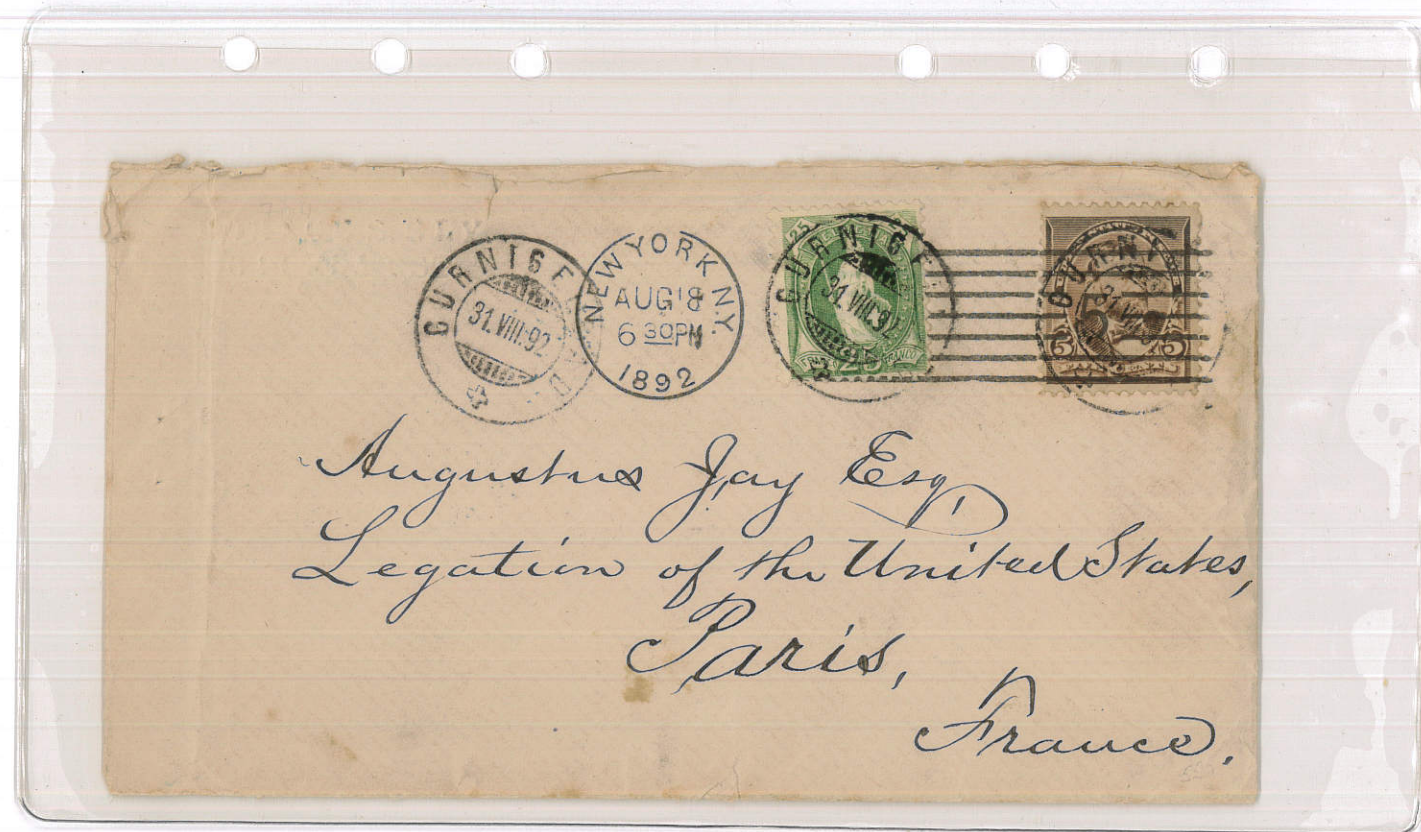 GURNIGEL
31.VIII.92
NEW YORK N.Y.
AUG 18
6 30PM
1892
25
GURNIGEL
31.VIII.92
25
FRANCO
GURNI
31.VIII.9
5
5
Augustus Jay Esq,
Legation of the United States,
Paris,
France.